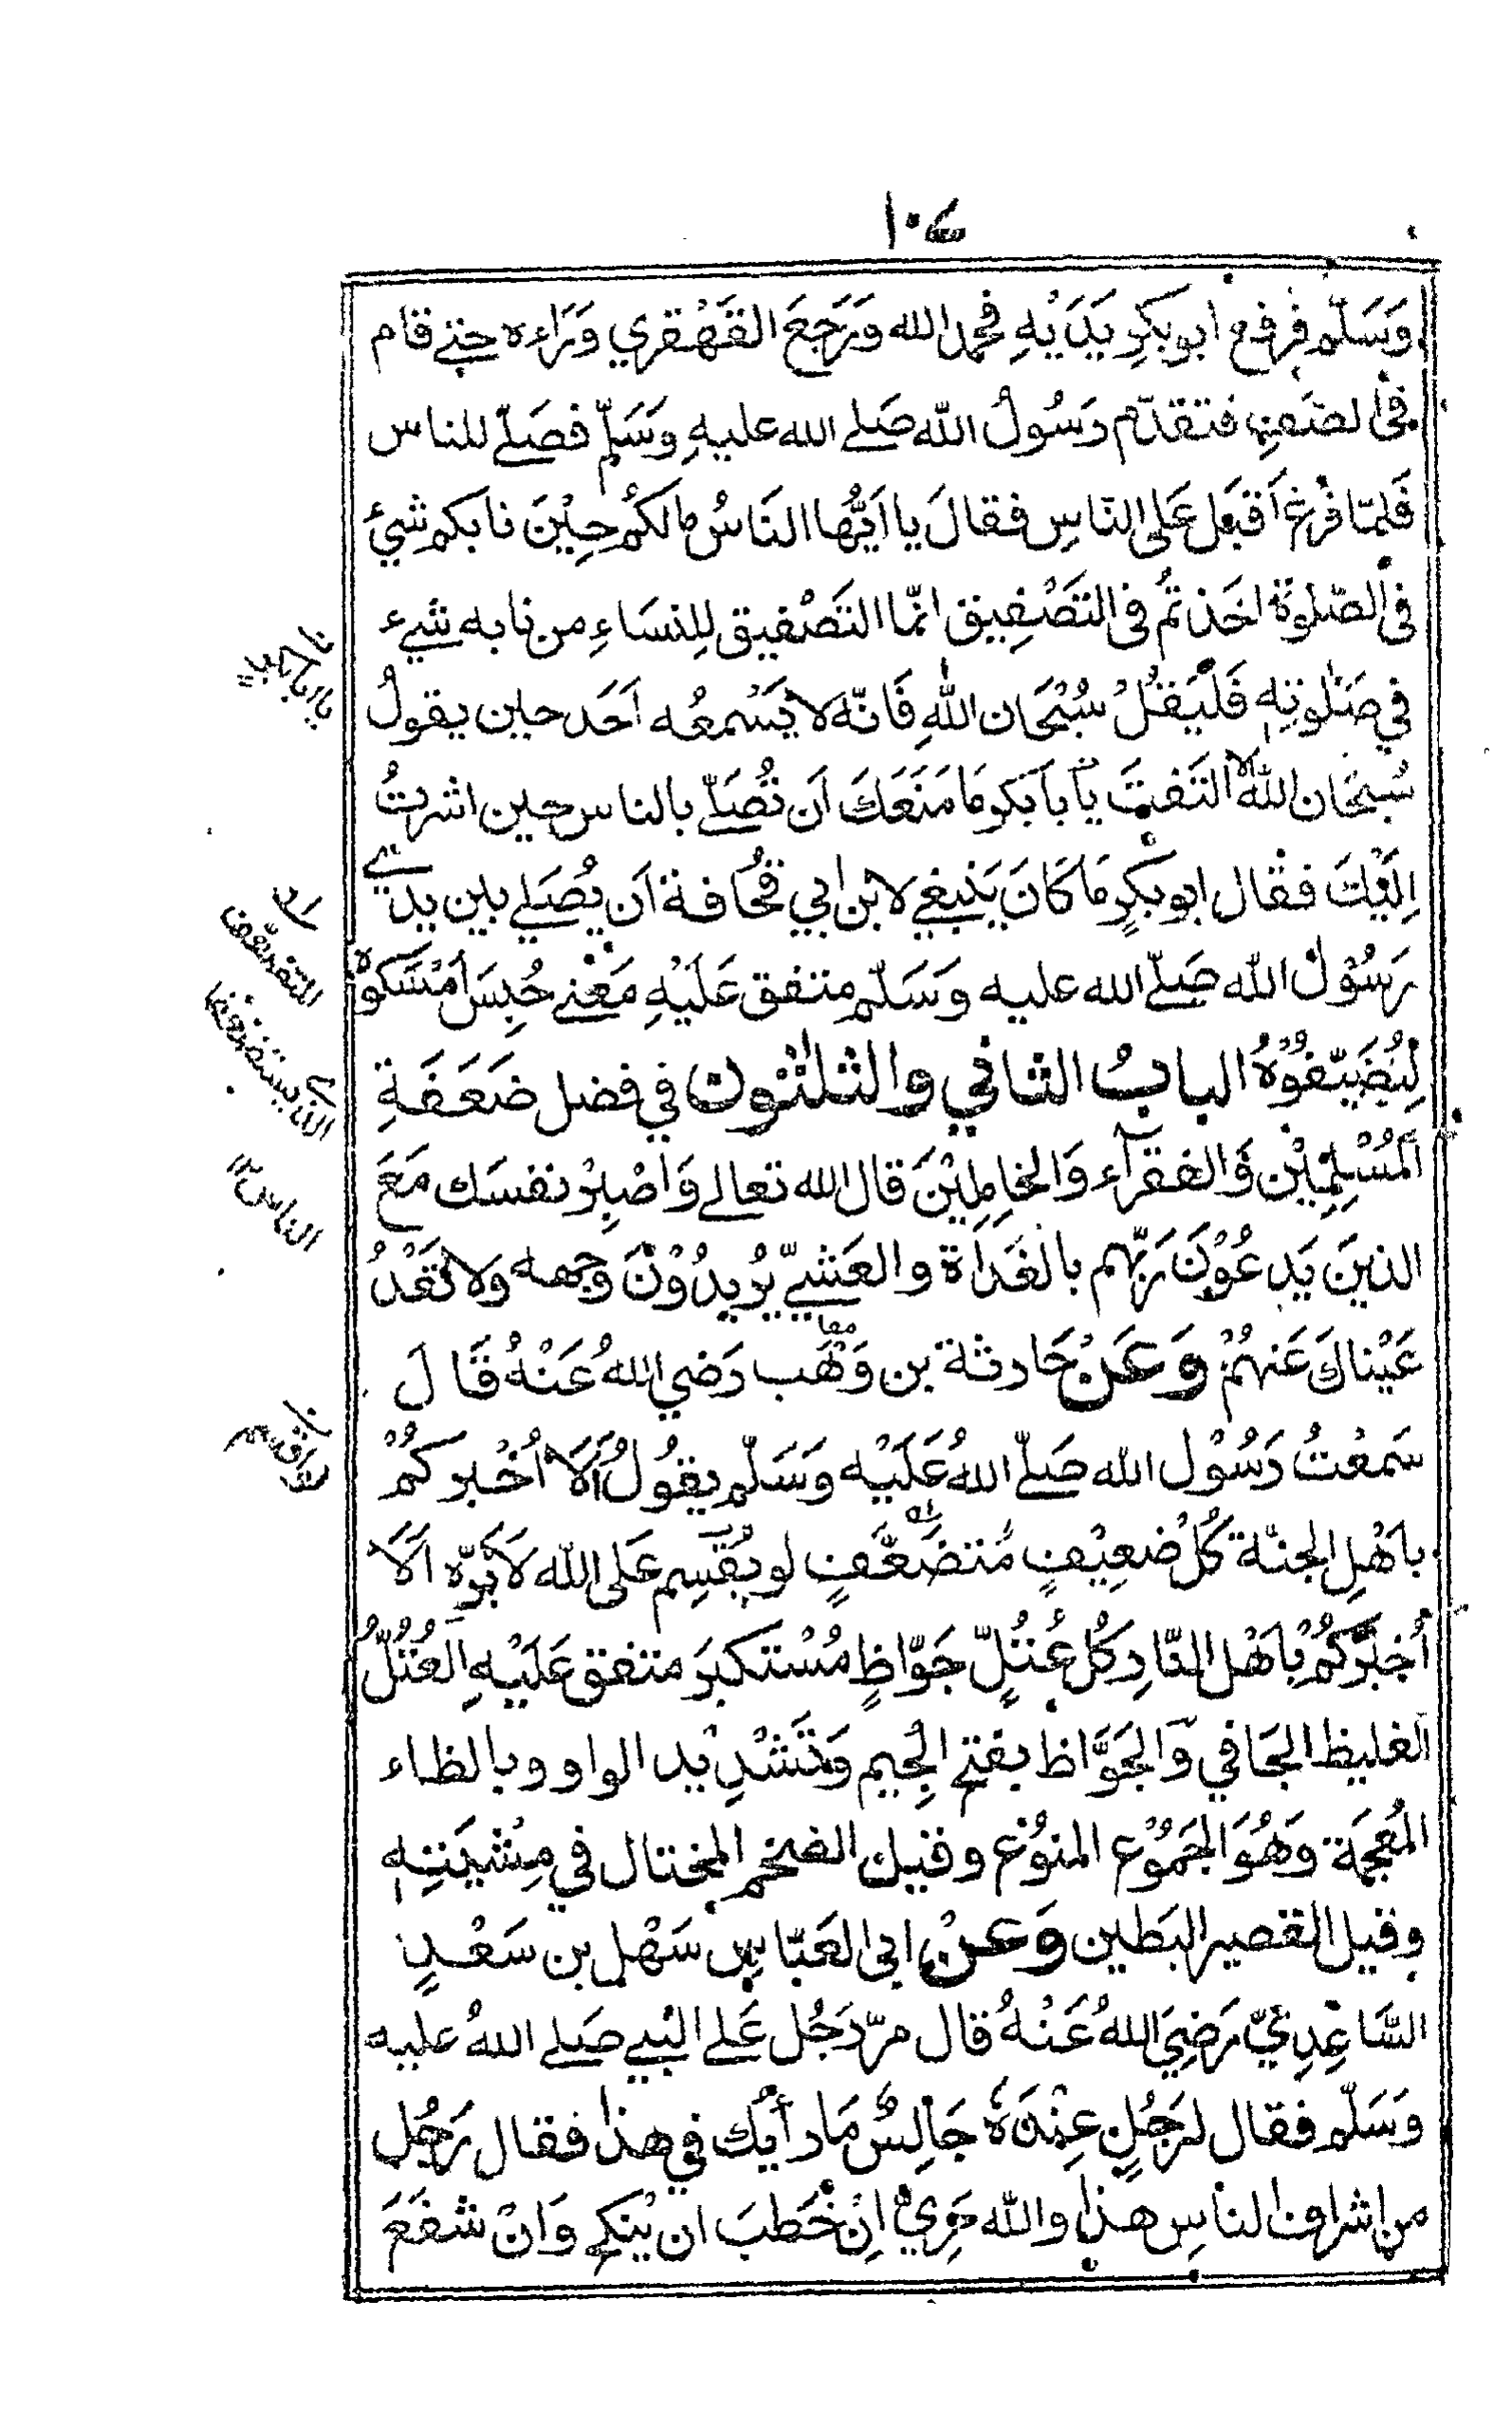 ١٠٧
وَسَلّم فرفع ابو بكرٍ يَدَيْهِ فحمد الله وَرَجَعَ القَهْقري وَرَاءه حتے قام
فى الصَف فتقدّم رَسُولُ الله صَلے الله عليهِ وَسَلّم فصَلّے للناس
فَلمّا فرغ اَقبَل عَلى النّاسِ فقالَ يا اَيُّها النَاسُ مالكُم حِيْنَ نابكم شيئ
فى الصّلوة اخَذتُم فى التَصْفِيق انّما التَصْفيق لِلنسَاءِ من نابه شيء
في صَلوتهٖ فَلْيَقُلْ سُبْحَان اللهِ فَانّه لا يَسْمعُه اَحَد حين يقولُ
سُبْحَان الله الا التَفتَ يا بَا بَكر مَا مَنَعَكَ اَن تُصَلّے بالناس حين اشرتُ
اِلَيْكَ فقال ابو بكرٍ مَا كَانَ يَنبغي لابن ابي قُحَافة اَن يُصَلے بين يدے
رَسُوْلُ الله صَلّے الله عليه وَسَلّم متفق عَلَيْهِ مَعْنے حُبِسَ اَمْسَكوهُ
لِيُضَيّفُوْهُ البابُ الثاني والثلثون في فضل ضَعَفَةِ
المُسْلِمِيْن وَالفقرآء وَالخامِلِيْنَ قال الله تعالے وَاصْبِرْ نفسَك مَعَ
الذينَ يَدعُوْنَ رَبّهم بالغَدَاة والعَشيّے يُرِيدُوْنَ وَجهه وَلا تَعْدُ
عَيْناكَ عَنهُمْ وَعَنْ حَارثة بن وَهْب رَضي اللهُ عَنْهُ قَالَ
سَمعْتُ رَسُوْل الله صَلّے اللهُ عَلَيْه وَسَلّم يقُولُ اَلَا اُخْبركُمْ
باَهْلِ الجنّة كُلُ ضعِيْفٍ مُتضَعَّفٍ لو يُقسِم عَلى الله لَاَبَرّه اَلَا
اُخبرُكُمْ بِاَهْل النّارِ كُل عُتُلٍّ جَوّاظٍ مُسْتكبرَ متفق عَلَيْهِ العُتُلُّ
الغليظ الجَافي وَالجَوَّاظ بفتح الجِيم وَتَشْدِيد الواو وبالظاء
المُعجَمة وَهُوَ الجَمُوْع المنُوْع وقيل الضخم المختال في مِشْيَتهٖ
وقيل القصير البَطين وَعَنْ ابى العَبّاسِ سَهْل بن سَعْدٍ
السَّاعِدِيّ رَضِيَ اللهُ عَنْهُ قال مرّ رَجُل عَلے النبے صَلے اللهُ عليه
وَسَلّم فقال لرَجُلٍ عِنْدَهُ جَالِسٌ مَا رأيُك في هذا فقال رَجُل
من اشراف الناسِ هذا والله حَرِيٌ اِنْ خَطبَ ان يُنكح وَانْ شفَعَ
الذے يستضعفه
الناس ١٢